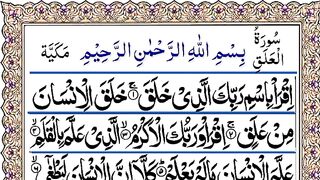 سُورَةُ الْعَلَقِ بِسْمِ اللهِ الرَّحْمٰنِ الرَّحِيْمِ مَكِيَّة
اِقْرَاْ بِاسْمِ رَبِّكَ الَّذِىْ خَلَقَ ۝١ خَلَقَ الْاِنْسَانَ
مِنْ عَلَقٍ ۝٢ اِقْرَاْ وَرَبُّكَ الْاَكْرَمُ ۝٣ الَّذِىْ عَلَّمَ بِالْقَلَمِ ۝٤
عَلَّمَ الْاِنْسَانَ مَا لَمْ يَعْلَمْ ۝٥ كَلَّاۤ اِنَّ الْاِنْسَانَ لَيَطْغٰٓى ۝٦